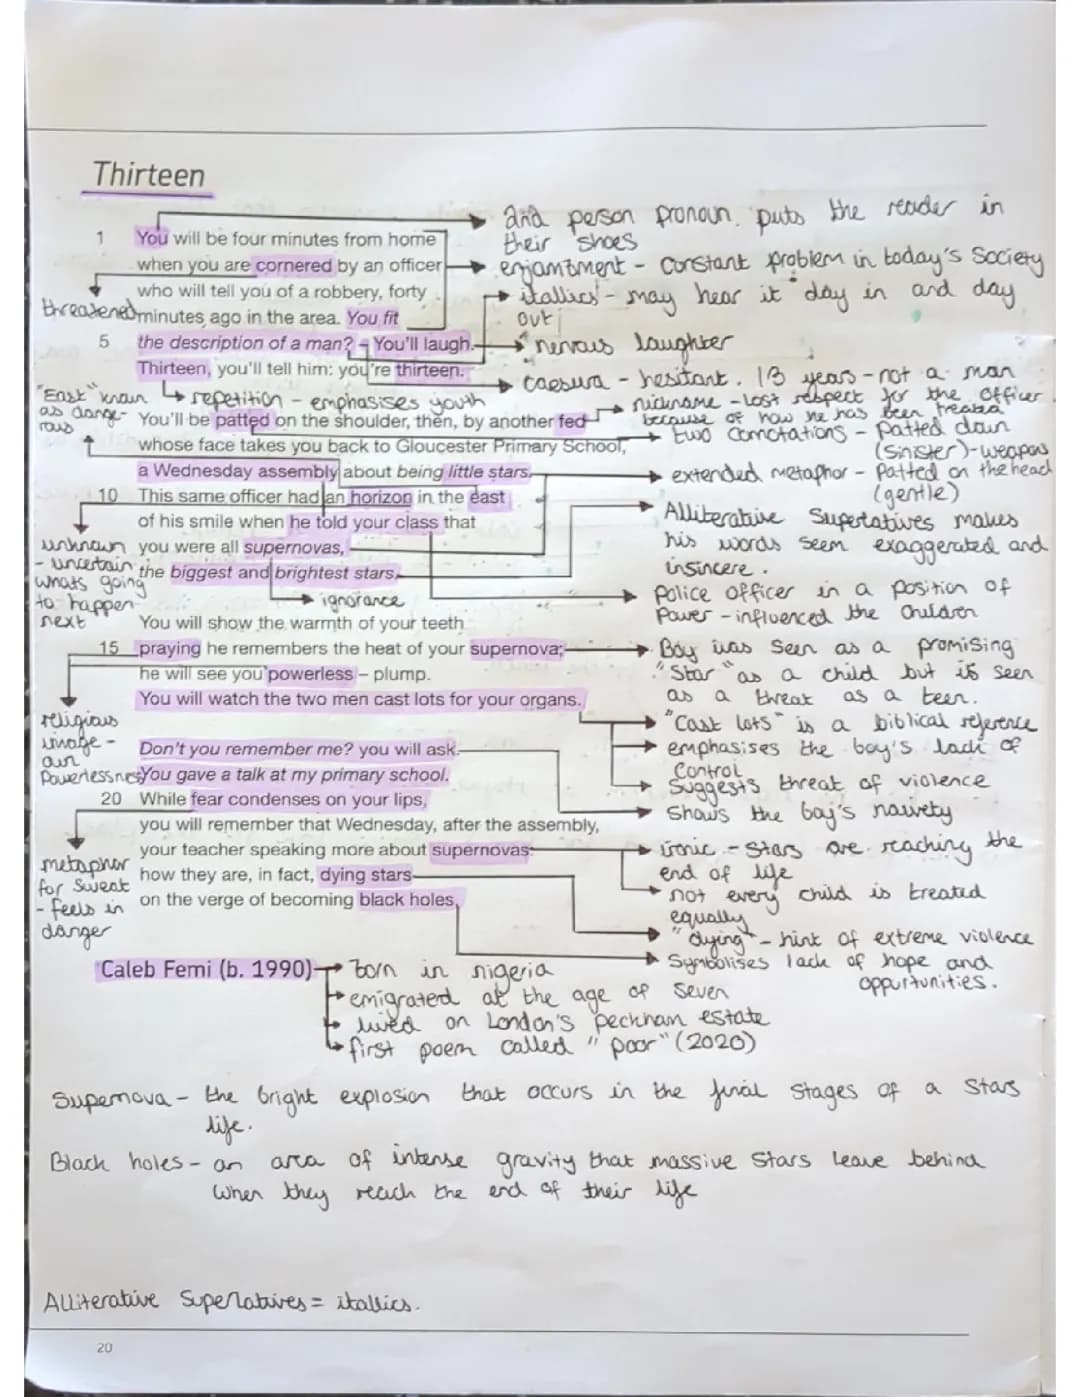 Thirteen
1 You will be four minutes from home
when you are cornered by an officer
who will tell you of a robbery, forty
minutes ago in the area. You fit
5 the description of a man? – You'll laugh.
Thirteen, you'll tell him: you're thirteen.
You'll be patted on the shoulder, then, by another fed
whose face takes you back to Gloucester Primary School,
a Wednesday assembly about being little stars.
10 This same officer had an horizon in the east
of his smile when he told your class that
you were all supernovas,
the biggest and brightest stars.
You will show the warmth of your teeth
15 praying he remembers the heat of your supernova;
he will see you powerless – plump.
You will watch the two men cast lots for your organs.
Don't you remember me? you will ask.
You gave a talk at my primary school.
20 While fear condenses on your lips,
you will remember that Wednesday, after the assembly,
your teacher speaking more about supernovas:
how they are, in fact, dying stars
on the verge of becoming black holes.
Caleb Femi (b. 1990)
2nd person pronoun. puts the reader in
their shoes
enjambment - constant problem in today's Society
itallics - may hear it "day in and day
out"
nervous laughter
caesura - hesitant. 13 years - not a man
repetition - emphasises youth
nickname - lost respect for the officer
because of how he has been treated
two connotations - Patted down
(sinister) - weapons
extended metaphor - Patted on the head
(gentle)
Alliterative Superlatives makes
his words seem exaggerated and
insincere.
ignorance
Police officer in a position of
Power - influenced the children
Boy was seen as a promising
"Star" as a child but is seen
as a threat as a teen.
"Cast lots" is a biblical reference
emphasises the boy's lack of
Control
Suggests threat of violence
Shows the boy's naivety
ironic - Stars are reaching the
end of life
not every child is treated
equally
"dying" - hint of extreme violence
Symbolises lack of hope and
oppurtunities.
threatened
"East" known
as dange-
rous
unknown
- uncertain
whats going
to happen
next
religious
image -
own
Powerlessness
metaphor
for Sweat
- feels in
danger
born in nigeria
emigrated at the age of seven
lived on London's peckham estate
first poem called "poor" (2020)
Supernova - the bright explosion that occurs in the final stages of a stars
life.
Black holes - an area of intense gravity that massive stars leave behind
when they reach the end of their life
Alliterative Superlatives = itallics.
20